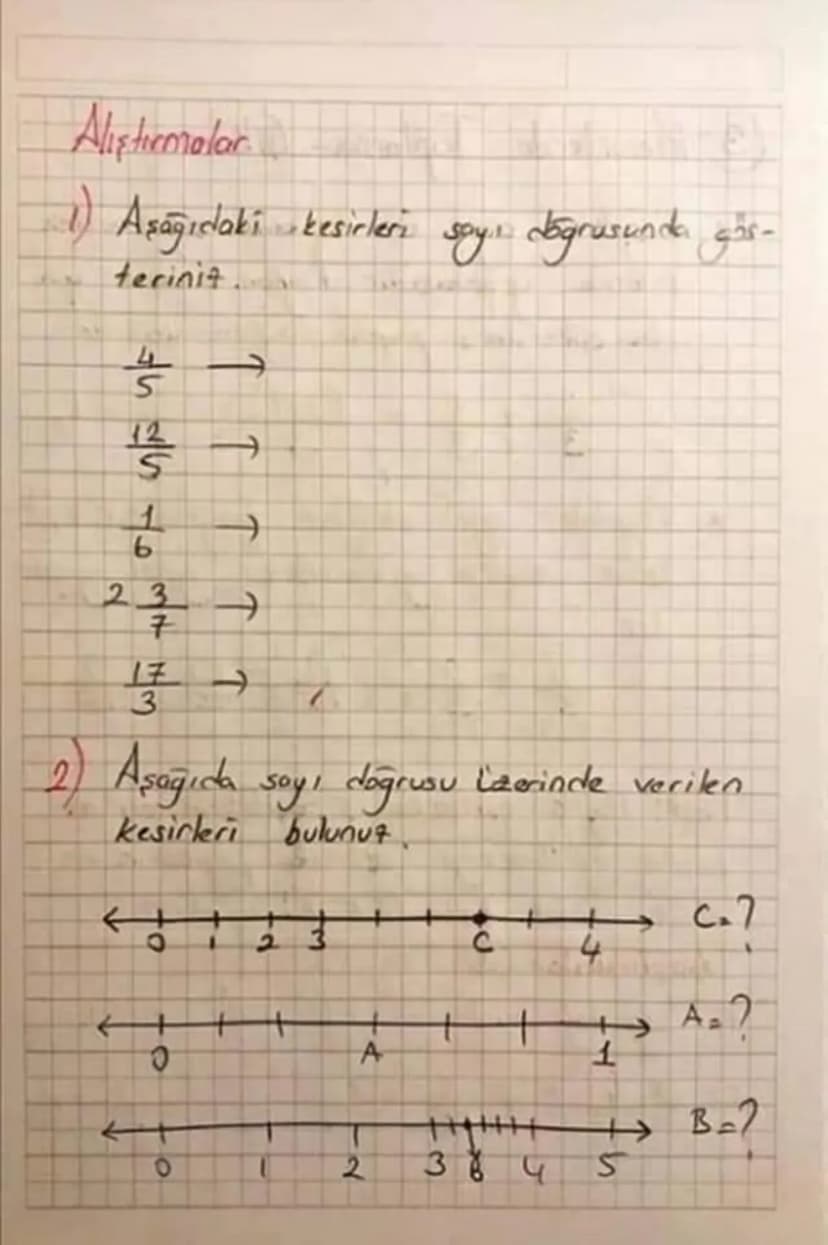 Alıştırmalar
1) Aşağıdaki kesirleri sayı doğrusunda gös-
teriniz.
4/5 →
12/5 →
1/6 →
2 3/7 →
17/3 →
2) Aşağıda sayı doğrusu üzerinde verilen
kesirleri bulunuz.
0 1 2 3 C 4 C=?
0 A 1 A=?
0 1 2 3 B 4 5 B=?